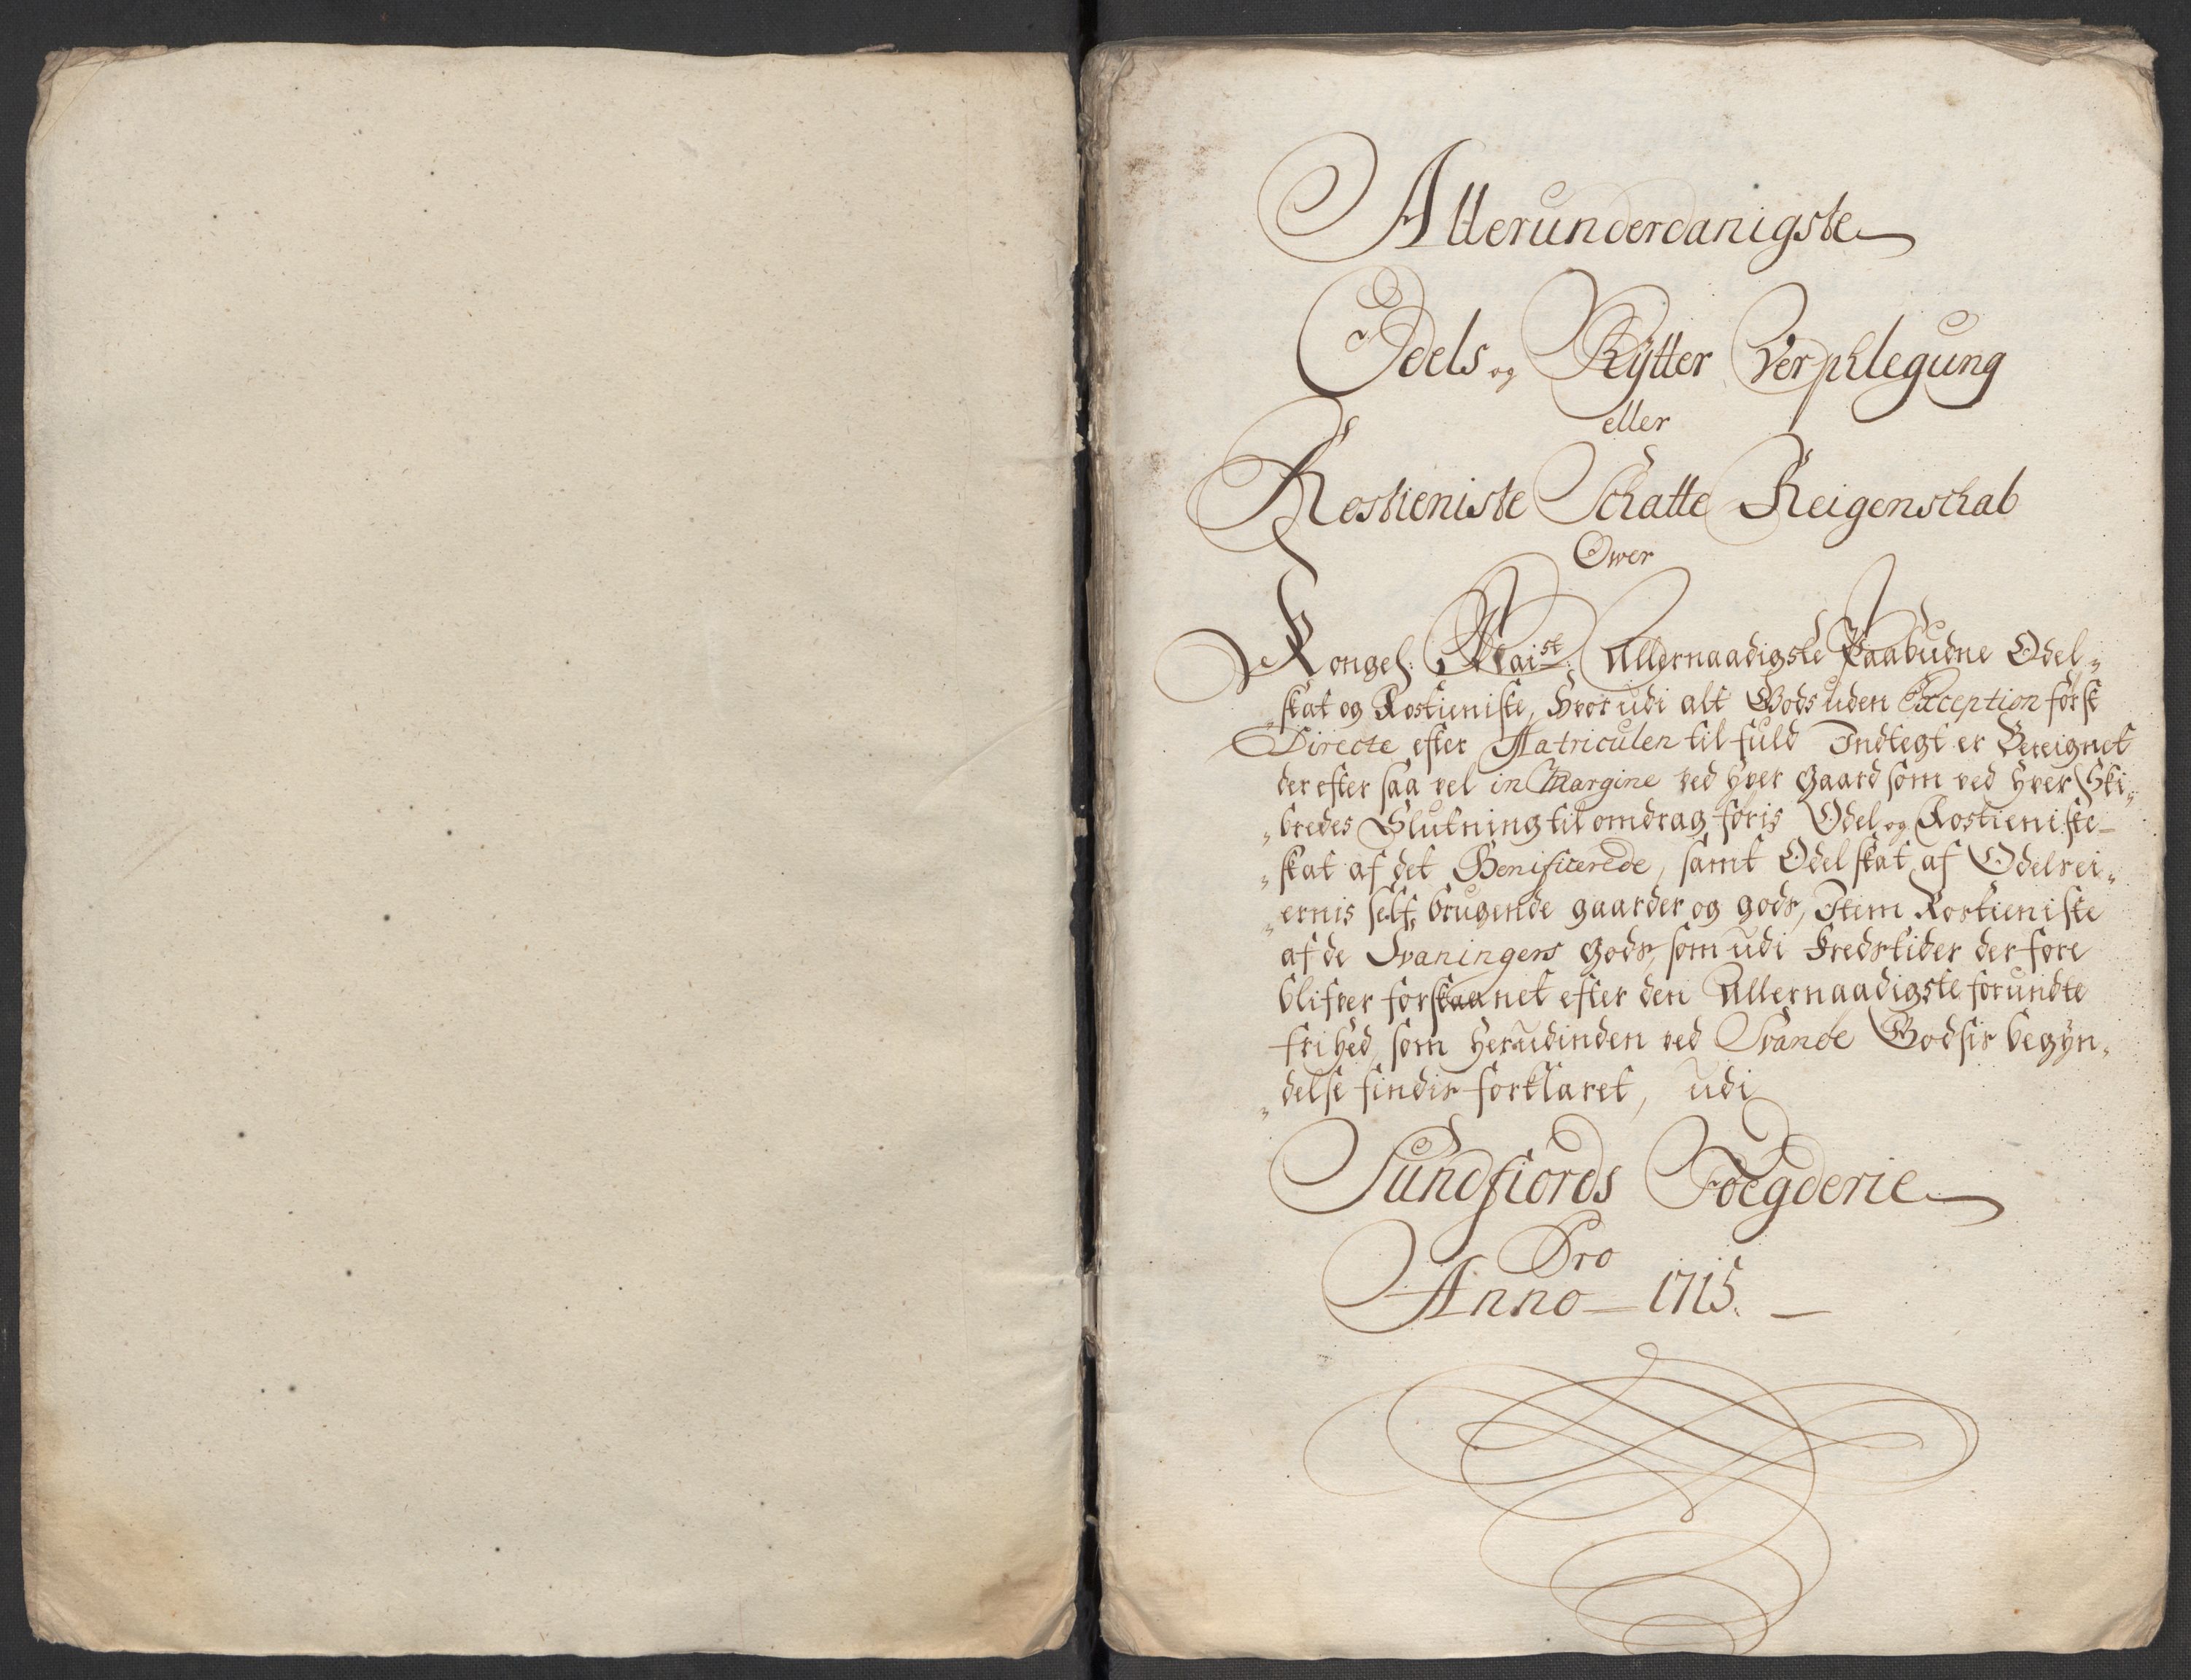 Allerunderdanigste
Odels og Rytter Verphlegung
eller
Rostieniste Schatte Reigenschab
Ower
Kongel: Maist: Allernaadigste Paabudne Odel„
„skat og Rostieniste, hvorudi alt Gods uden Exception først
Directe efter Matriculen til fuld Indtegt er Bereignet
der efter saa vel in Margine ved hver gaard som ved hver Ski„
„bredes Slutning til omdrag føris Odel og Rostieniste
„skat af det Benificerede, samt Odelskat af Odelsei„
„ernis self brugende gaarder og gods, Item Rostieniste
af de Svaningers gods, som udi Fredstider der fore
blifver forskaanet efter den Allernaadigste forundte
frihed, som herudinden ved Svanøe Godsis begyn„
„delse findis forklaret, udi
Sundfiords Foegderie
Pro
Anno 1715.